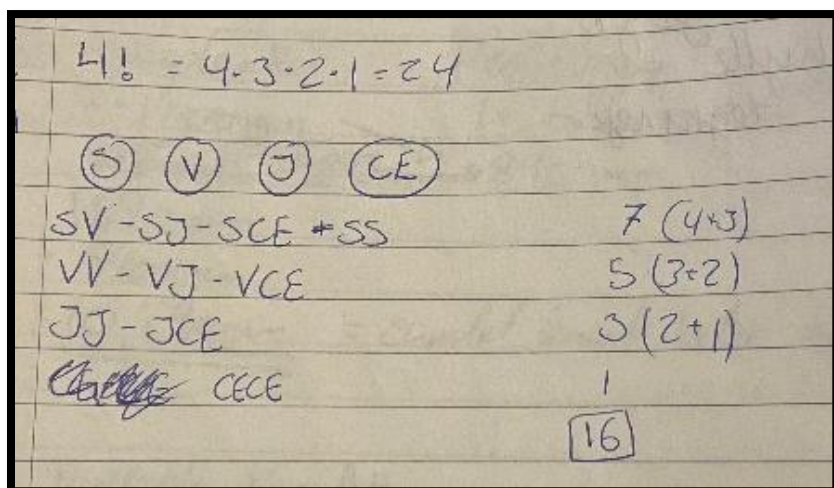 4! = 4·3·2·1 = 24
S V J CE
SV - SJ - SCE + SS 7 (4+3)
VV - VJ - VCE 5 (3+2)
JJ - JCE 3 (2+1)
CECE 1
16